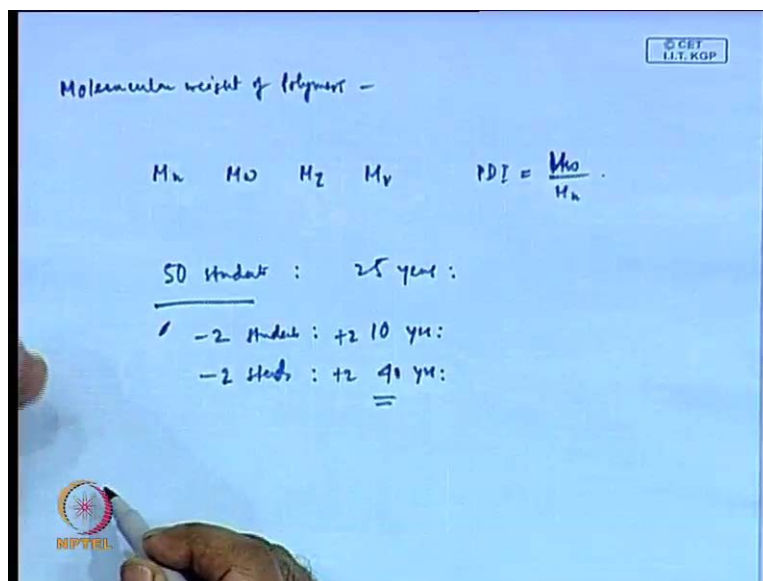 © CET
I.I.T. KGP
Molecular weight of Polymers -
Mn Mw Mz Mv PDI = Mw / Mn .
50 students : 25 years :
-2 students : +2 10 yrs :
-2 studs : +2 40 yrs :
NPTEL